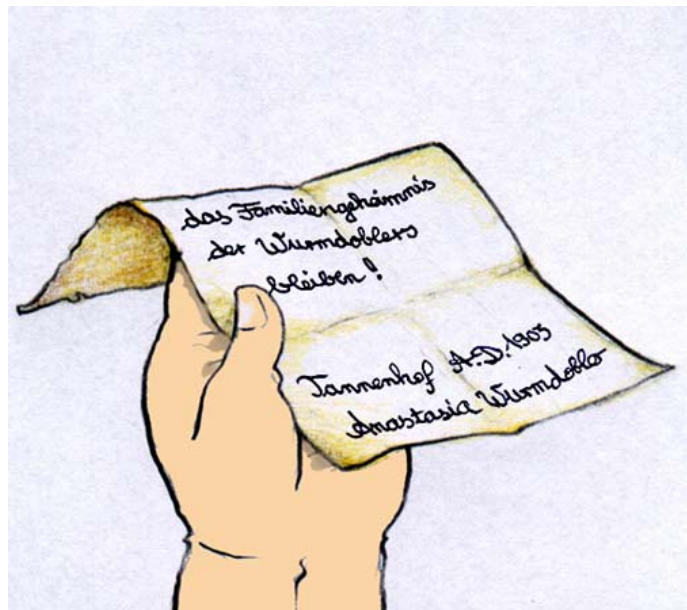 das Familiengeheimnis
der Wurmdoblers
bleiben!
Tannenhof A.D. 1903
Anastasia Wurmdobler